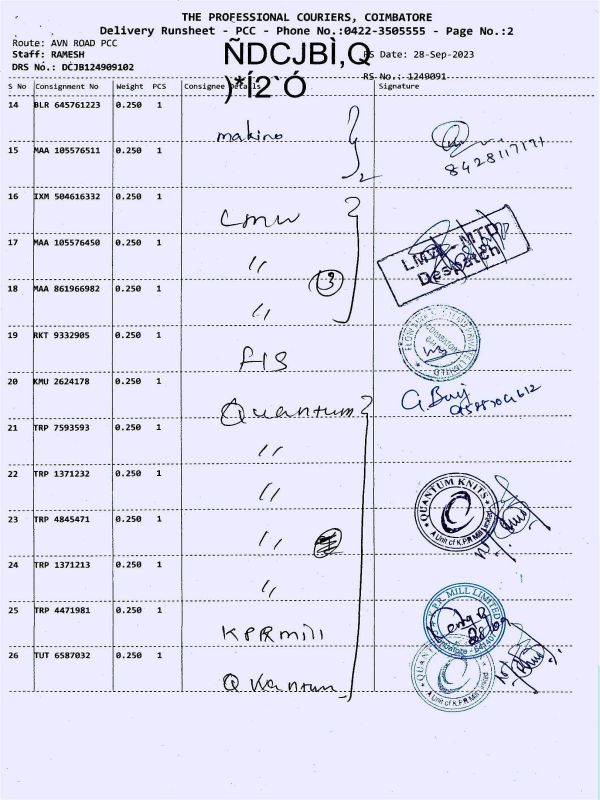 THE PROFESSIONAL COURIERS, COIMBATORE
Delivery Runsheet - PCC - Phone No.:0422-3505555 - Page No.:2
Route: AVN ROAD PCC
ÑDCJBÌ,Q
Staff: RAMESH
RS Date: 28-Sep-2023
DRS No.: DCJB124909102
)*Í2`Ó
RS No.: 1249091
S No Consignment No Weight PCS Consignee Details Signature
14 BLR 645761223 0.250 1 makino
15 MAA 105576511 0.250 1 2 8428117171
16 IXM 504616332 0.250 1 LMW
17 MAA 105576450 0.250 1 〃 LMW - MTD
Despatch
18 MAA 861966982 0.250 1 〃 3
19 RKT 9332905 0.250 1 FIS
20 KMU 2624178 0.250 1 Quantum
21 TRP 7593593 0.250 1 〃
22 TRP 1371232 0.250 1 〃 QUANTUM KNITS
A Unit of K.P.R Mill Limited
23 TRP 4845471 0.250 1 〃
24 TRP 1371213 0.250 1 〃
25 TRP 4471981 0.250 1 KPR mill K.P.R. MILL LIMITED
26 TUT 6587032 0.250 1 Quantum
A Unit of K.P.R Mill Limited